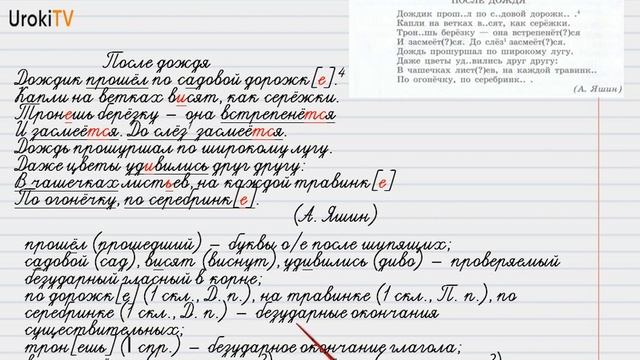 UrokiTV
ПОСЛЕ ДОЖДЯ
Дождик прош..л по с..довой дорожк.. .⁴
Капли на ветках в..сят, как серёжки.
Трон..шь берёзку — она встрепенёт(?)ся
И засмеёт(?)ся. До слёз¹ засмеёт(?)ся.
Дождь прошуршал по широкому лугу.
Даже цветы уд..вились друг другу:
В чашечках лист(?)ев, на каждой травинк..
По огонёчку, по серебринк.. .
(А. Яшин)
После дождя
Дождик прошёл по садовой дорожк[е].⁴
Капли на ветках висят, как серёжки.
Тронешь берёзку – она встрепенётся
И засмеётся. До слёз¹ засмеётся.
Дождь прошуршал по широкому лугу.
Даже цветы удивились друг другу:
В чашечках листьев, на каждой травинк[е]
По огонёчку, по серебринк[е].
(А. Яшин)
прошёл (прошедший) – буквы о/е после шипящих;
садовой (сад), висят (виснут), удивились (диво) – проверяемый
безударный гласный в корне;
по дорожк[е] (1 скл., Д. п.), на травинке (1 скл., П. п.), по
серебринке (1 скл., Д. п.) – безударные окончания
существительных;
трон[ешь] (1 спр.) – безударное окончание глагола;